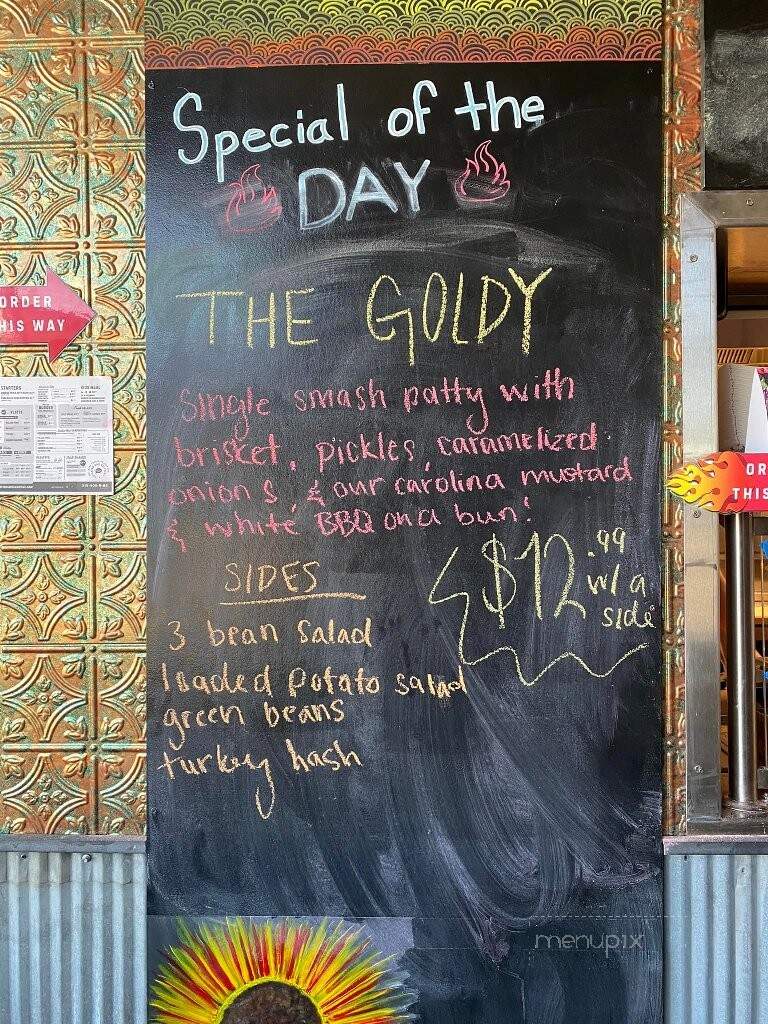 Special of the
DAY
THE GOLDY
Single smash patty with
brisket, pickles, caramelized
onions, & our carolina mustard
& white BBQ on a bun!
$12.99
w/ a
side
SIDES
3 bean salad
loaded potato salad
green beans
turkey hash
ORDER
THIS WAY
STARTERS
OR
THIS
menupix